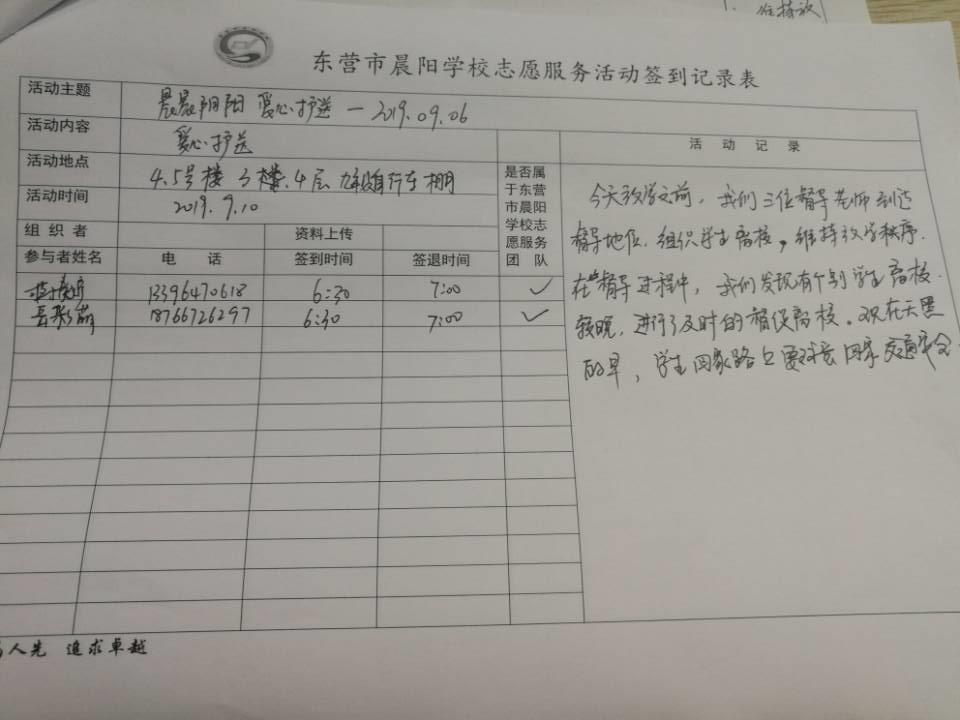 东营市晨阳学校志愿服务活动签到记录表
活动主题 晨晨阳阳 爱心护送 — 2019.09.06
活动内容 爱心护送
活动地点 4.5号楼 3楼.4层 自行车棚
活动时间 2019.9.10
是否属于东营市晨阳学校志愿服务团队
组织者 资料上传
参与者姓名 电话 签到时间 签退时间
13396470618 6:30 7:00 ✓
18766726297 6:30 7:00 ✓
活动记录
今天放学之前，我们三位督导老师到达
督导地位，组织学生离校，维持放学秩序.
在督导进程中，我们发现有个别学生离校
较晚，进行了及时的督促离校。现在天黑
的早，学生回家路上要注意回家交通安全
人先 追求卓越